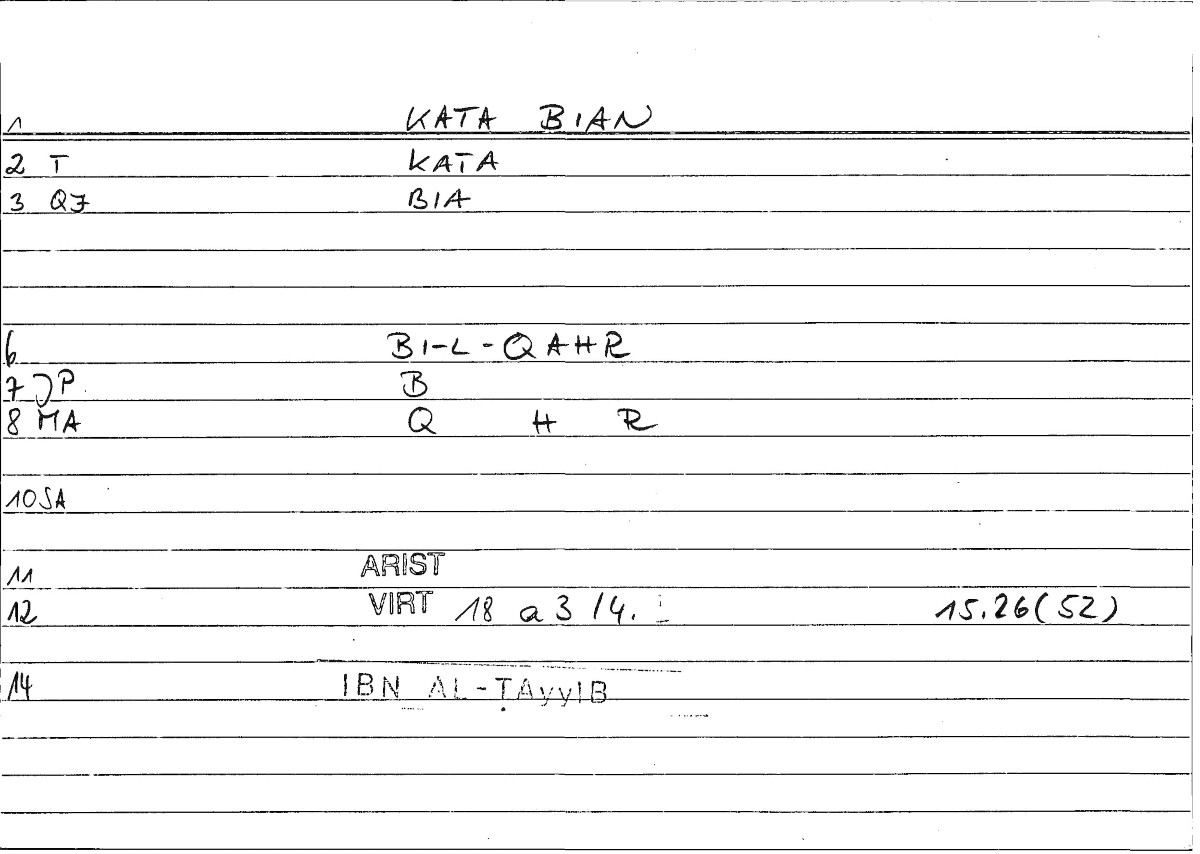 1 KATA BIAN
2 T KATA
3 QJ BIA
6 BI-L-QAHR
7 JP B
8 MA Q H R
10 SA
11 ARIST
12 VIRT 18 a 3 /4. 15.26(52)
14 IBN AL-ṬAyyIB